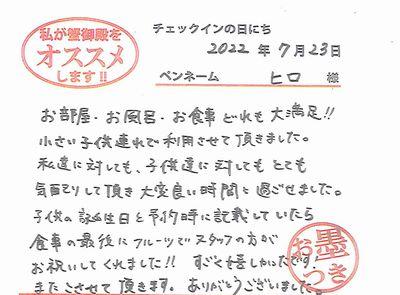 私が蟹御殿を
オススメ
します!!
チェックインの日にち
2022 年 7月23日
ペンネーム ヒロ 様
お部屋・お風呂・お食事どれも大満足!!
小さい子供連れで利用させて頂きました。
私達に対しても、子供達に対してもとても
気配りして頂き大変良い時間に過ごせました。
子供の誕生日と予約時に記載していたら
食事の最後にフルーツでスタッフの方が
お祝いしてくれました!! すごく嬉しかったです!
またこさせて頂きます。ありがとうございました。
お墨
つき